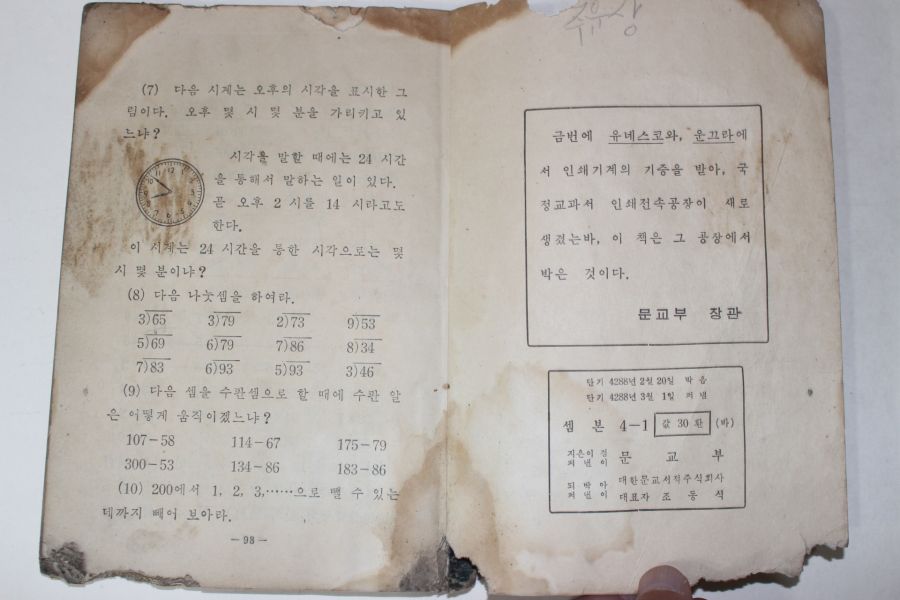 (7) 다음 시계는 오후의 시각을 표시한 그
림이다. 오후 몇 시 몇 분을 가리키고 있
느냐?
시각을 말할 때에는 24 시간
을 통해서 말하는 일이 있다.
곧 오후 2 시를 14 시라고도
한다.
이 시계는 24 시간을 통한 시각으로는 몇
시 몇 분이냐?
(8) 다음 나눗셈을 하여라.
3)65 3)79 2)73 9)53
5)69 6)79 7)86 8)34
7)83 6)93 5)93 3)46
(9) 다음 셈을 수판셈으로 할 때에 수판 알
은 어떻게 움직이겠느냐?
107－58 114－67 175－79
300－53 134－86 183－86
(10) 200에서 1, 2, 3,……으로 뺄 수 있는
데까지 빼어 보아라.
－98－
금번에 유네스코와, 운끄라에
서 인쇄기계의 기증을 받아, 국
정교과서 인쇄전속공장이 새로
생겼는바, 이 책은 그 공장에서
박은 것이다.
문교부 장관
단기 4288년 2월 20일 박음
단기 4288년 3월 1일 펴냄
셈본 4－1 값 30 환 (바)
지은이 겸
펴낸이 문교부
되박아
펴낸이 대한문교서적주식회사
대표자 조동식